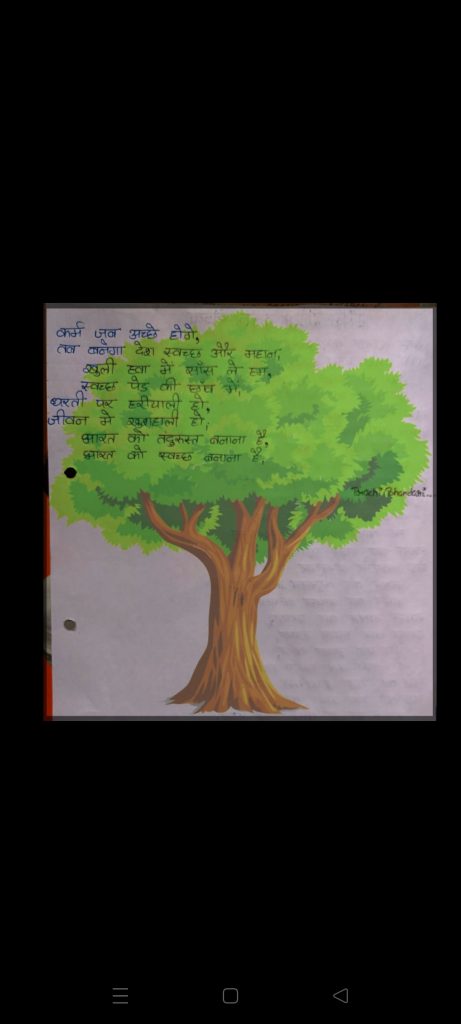 कर्म जब अच्छे होगे,
तब बनेगा देश स्वच्छ और महान;
खुली हवा में साँस ले हम,
स्वच्छ पेड की छाँव में;
धरती पर हरीयाली हो,
जीवन मे खुशहाली हो;
भारत को तंदुरुस्त बनाना है,
भारत को स्वच्छ बनाना है;
Prachi Bhandari...